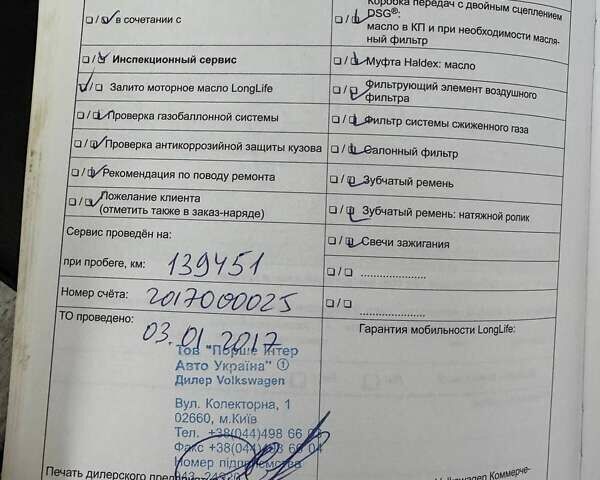 в сочетании с
Инспекционный сервис
Залито моторное масло LongLife
Проверка газобаллонной системы
Проверка антикоррозийной защиты кузова
Рекомендация по поводу ремонта
Пожелание клиента
(отметить также в заказ-наряде)
Сервис проведён на:
при пробеге, км: 139451
Номер счёта: 2017000025
ТО проведено:
03.01.2017
Тов "Порше Інтер
Авто Україна" ①
Дилер Volkswagen
Вул. Колекторна, 1
02660, м.Київ
Тел. +38(044)498 66
Факс +38(044)498 66 04
Номер підприємства
Печать дилерского
Коробка передач с двойным сцеплением
DSG®:
масло в КП и при необходимости масля-
ный фильтр
Муфта Haldex: масло
Фильтрующий элемент воздушного
фильтра
Фильтр системы сжиженного газа
Салонный фильтр
Зубчатый ремень
Зубчатый ремень: натяжной ролик
Свечи зажигания
Гарантия мобильности LongLife:
Volkswagen Коммерче-